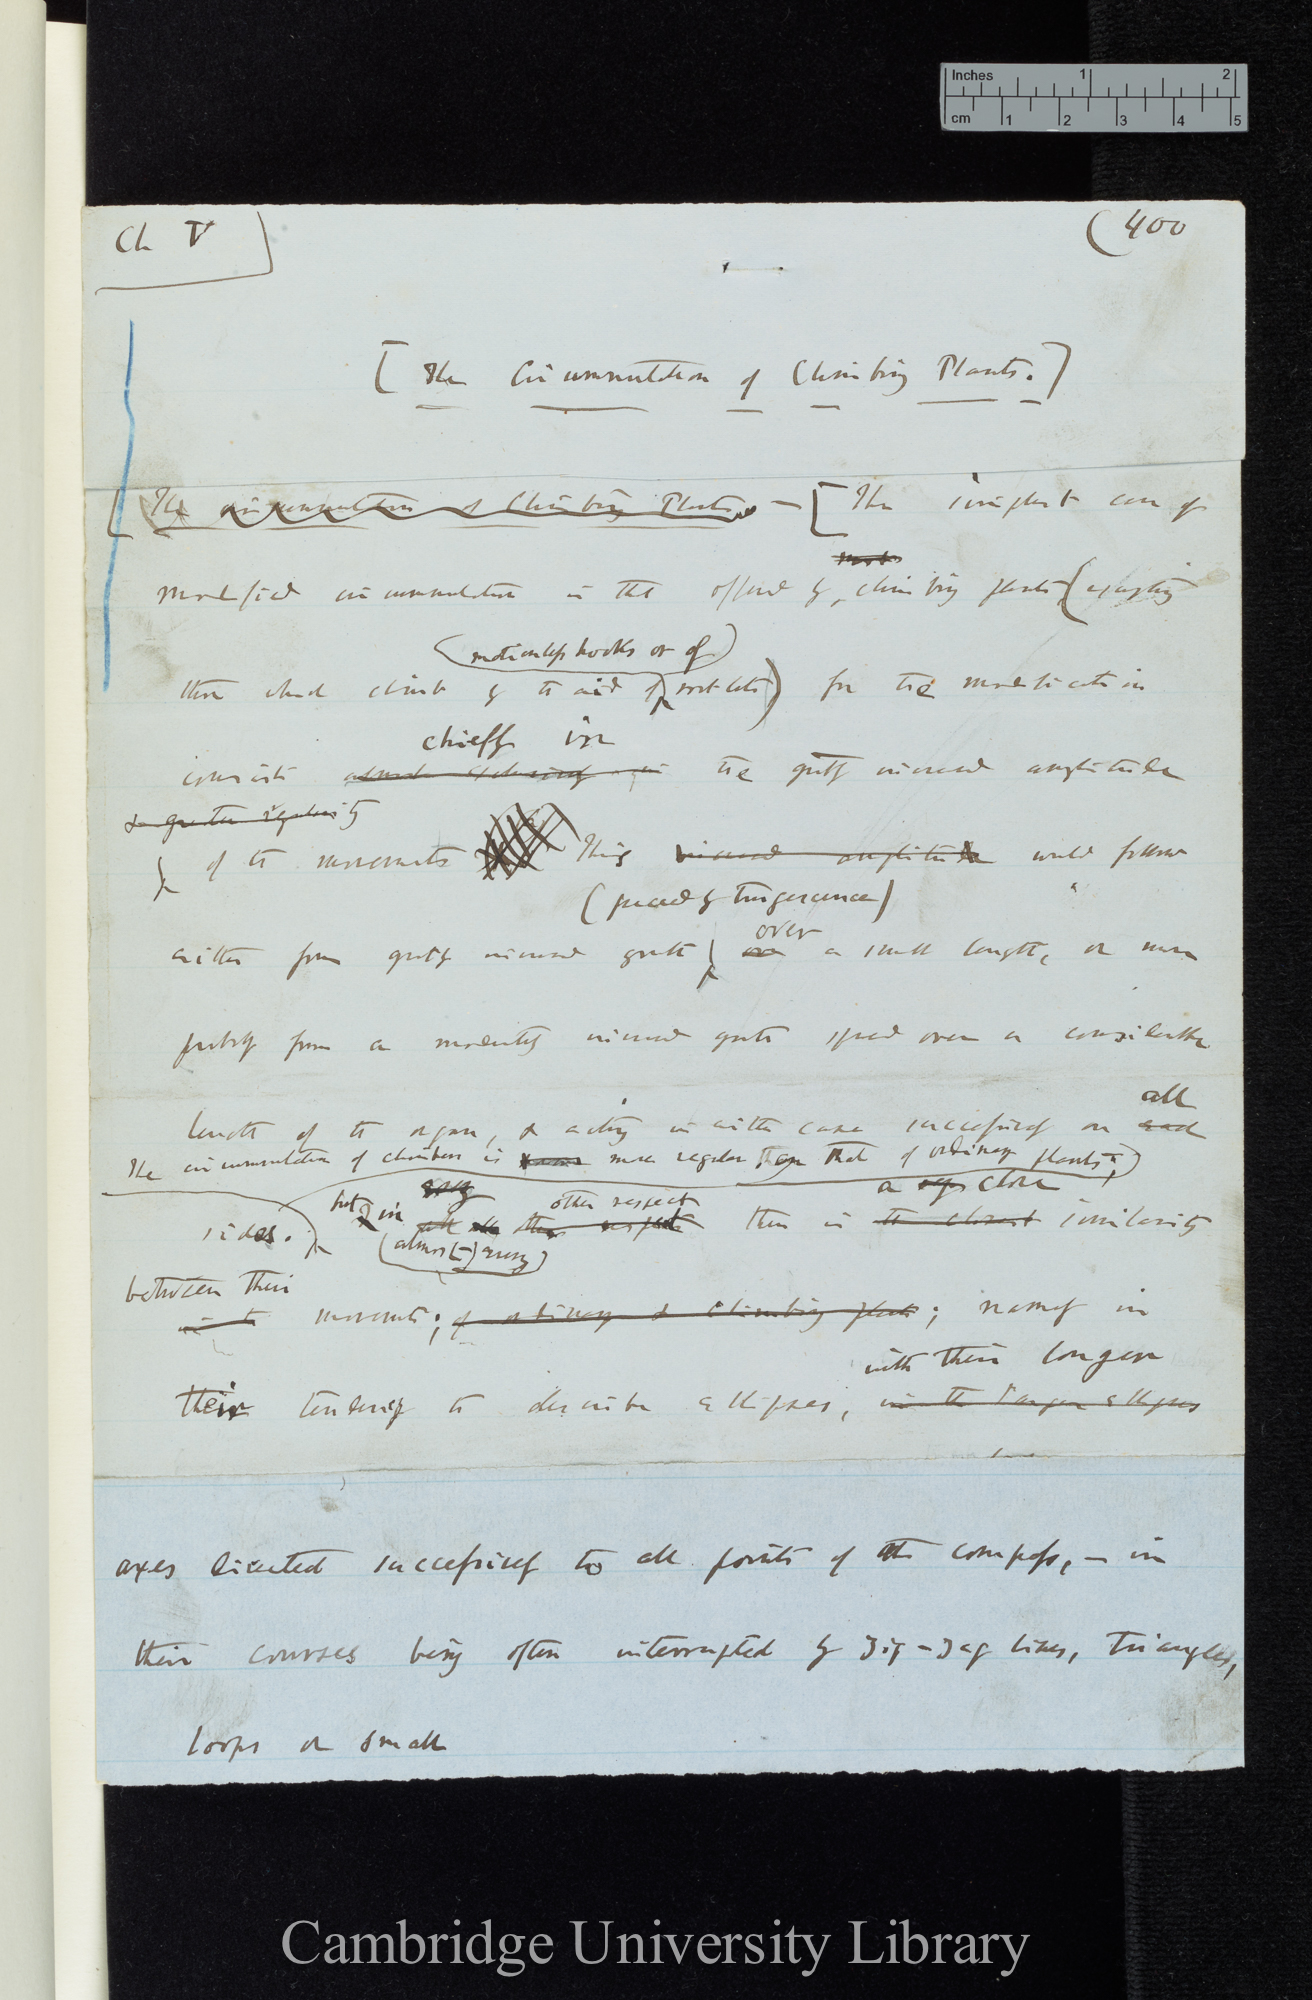 Inches 1 2
cm 1 2 3 4 5
Ch V
(400
[The Circumnutation of Climbing Plants.]
[The circumnutation of Climbing Plants. — [The simplest case of
most
modified circumnutation is that offered by climbing plants (excepting
(motionless hooks or of)
those which climb by the aid of rootlets) for the modification
chiefly in
consists almost exclusively in the greatly increased amplitude
& greater regularity
of the movements This increased amplitude would follow
(preceded by turgescence)
over
either from greatly increased growth on a small length, or more
probably from a moderately increased growth spread over a considerable
all
length of the organ, & acting in either case successively on each
The circumnutation of climbers is more regular than that of ordinary plants;
but in every other respect a close
sides. all other respects there is the closest similarity
(almost) every
between their
in the movements; of ordinary & climbing plants; namely in
with their longer
their tendency to describe ellipses, in the longer ellipses
axes directed successively to all points of the compass, – in
their courses being often interrupted by zig-zag lines, triangles,
loops or small
Cambridge University Library